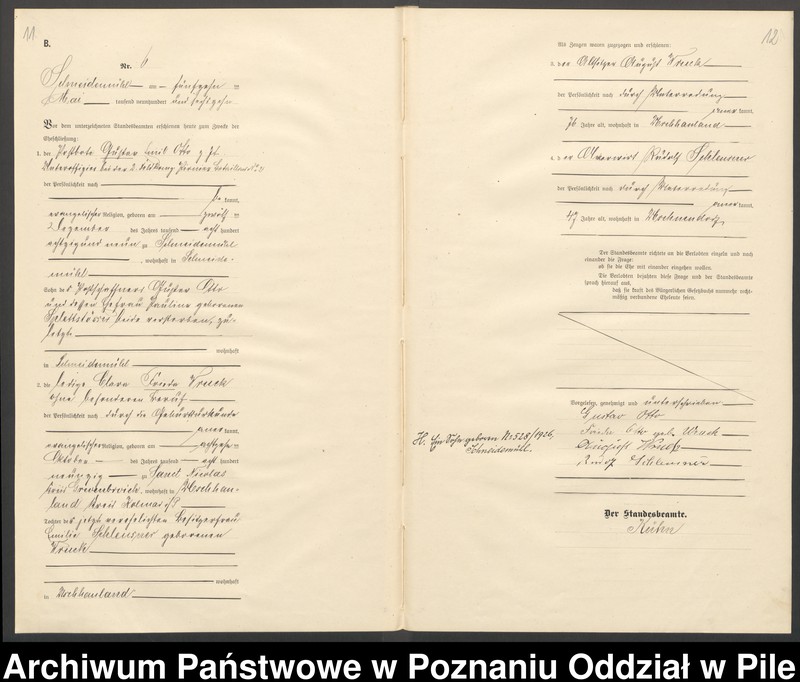 11
B.
Nr. 6
Schneidemühl am fünfzehn
Mai tausend neunhundert und sechzehn
Vor dem unterzeichneten Standesbeamten erschienen heute zum Zwecke der
Eheschließung:
1. der Postbote Gustav Emil Otto z. Zt.
Unteroffizier bei der 2.
der Persönlichkeit nach
be kannt,
evangelischer Religion, geboren am zwölf
Dezember des Jahres tausend acht hundert
achtzig und neun zu Schneidemühl
, wohnhaft in Schneide-
mühl
Sohn des Postschaffners Gustav Otto
und dessen Ehefrau Pauline geborenen
beide verstorben, zu-
letzt
wohnhaft
in Schneidemühl
2. die ledige Clara Frieda Wruck
ohne besonderen Beruf
der Persönlichkeit nach durch die Geburtsurkunde
aner kannt,
evangelischer Religion, geboren am achtzehn
Oktober des Jahres tausend acht hundert
neunzig zu Sankt Nicolas
Kreis, wohnhaft in
land Kreis Kolmar i/P.
Tochter der jetzt verehelichten Besitzerfrau
Emilie Schleusner geborenen
Wruck
wohnhaft
in
12
Als Zeugen waren zugezogen und erschienen:
3. der Altsitzer August Wruck
der Persönlichkeit nach durch Unterredung
aner kannt,
76 Jahre alt, wohnhaft in
4. der Rudolf Schleusner
der Persönlichkeit nach durch Unterredung
aner kannt,
47 Jahre alt, wohnhaft in
Der Standesbeamte richtete an die Verlobten einzeln und nach
einander die Frage:
ob sie die Ehe mit einander eingehen wollen.
Die Verlobten bejahten diese Frage und der Standesbeamte
sprach hierauf aus,
daß sie kraft des Bürgerlichen Gesetzbuchs nunmehr recht-
mäßig verbundene Eheleute seien.
Vorgelesen, genehmigt und unterschrieben
Gustav Otto
Frieda Otto geb. Wruck
August Wruck
Rudolf Schleusner
H. Ein Sohn geboren Nr. 528/1926,
Schneidemühl.
Der Standesbeamte.
Kühn
Archiwum Państwowe w Poznaniu Oddział w Pile